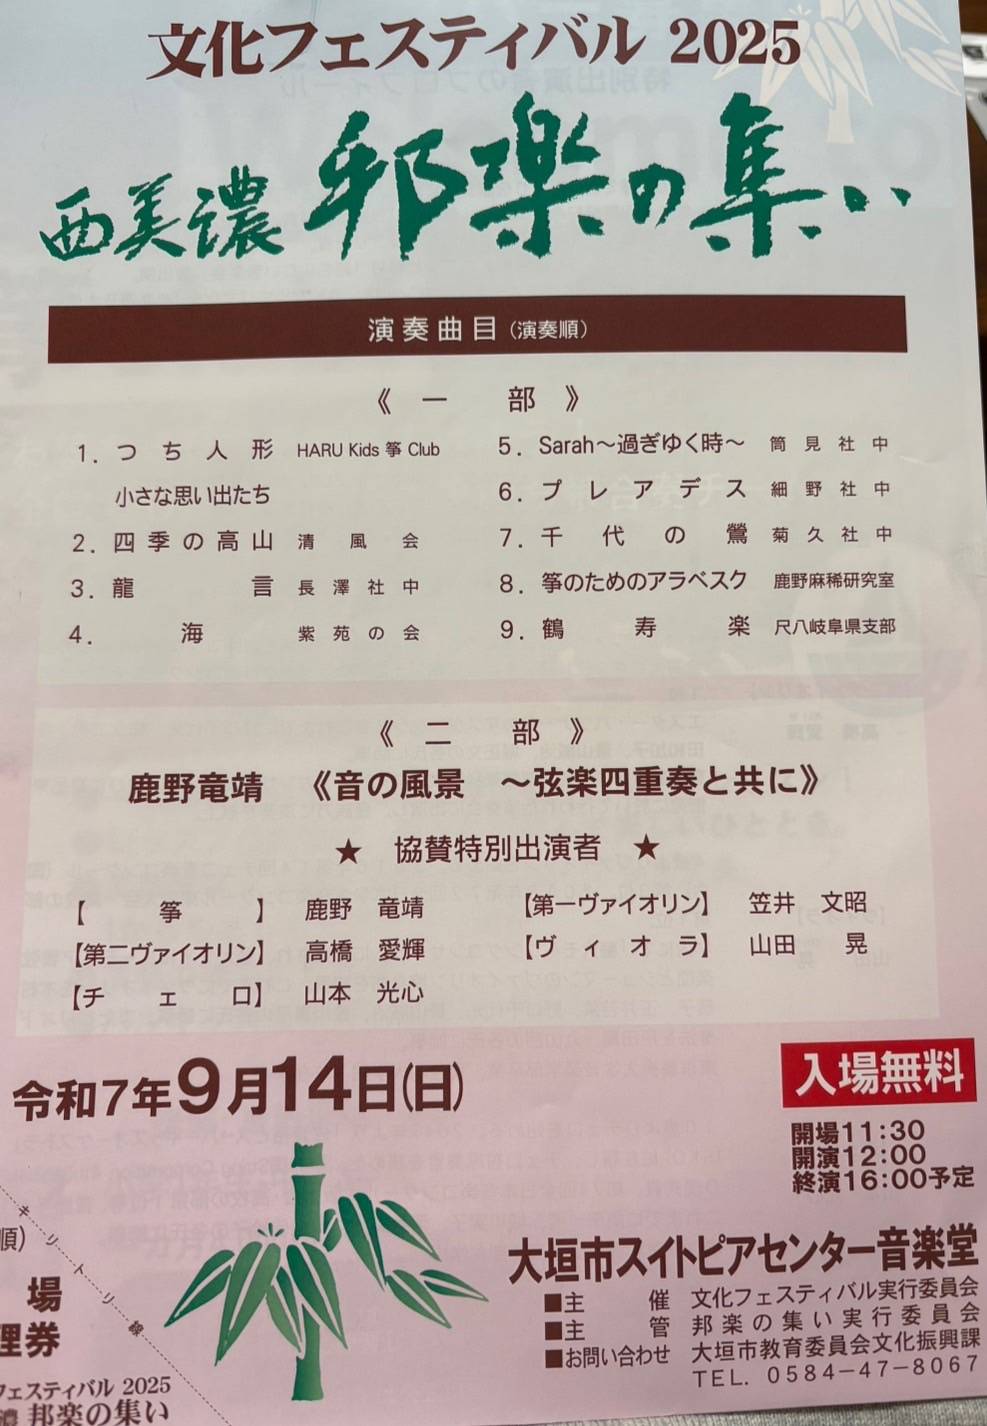 文化フェスティバル 2025
西美濃 邦楽の集い
演奏曲目(演奏順)
《一部》
1. つち人形 HARU Kids 箏 Club
小さな思い出たち
2. 四季の高山 清風会
3. 龍言 長澤社中
4. 海 紫苑の会
5. Sarah〜過ぎゆく時〜 筒見社中
6. プレアデス 細野社中
7. 千代の鶯 菊久社中
8. 箏のためのアラベスク 鹿野麻稀研究室
9. 鶴寿楽 尺八岐阜県支部
《二部》
鹿野竜靖 《音の風景 〜弦楽四重奏と共に》
★ 協賛特別出演者 ★
【箏】 鹿野 竜靖 【第一ヴァイオリン】 笠井 文昭
【第二ヴァイオリン】 高橋 愛輝 【ヴィオラ】 山田 晃
【チェロ】 山本 光心
令和7年9月14日(日)
入場無料
開場11:30
開演12:00
終演16:00予定
大垣市スイトピアセンター音楽堂
■主催 文化フェスティバル実行委員会
■主管 邦楽の集い実行委員会
■お問い合わせ 大垣市教育委員会文化振興課
TEL. 0584-47-8067
キリトリ線
順)
場
理券
フェスティバル 2025
濃 邦楽の集い